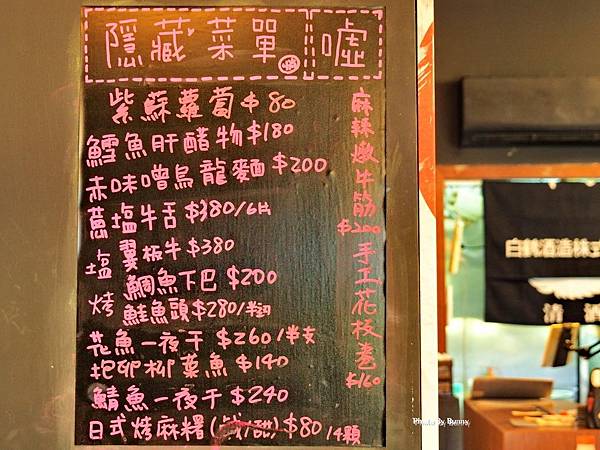 隱藏菜單 噓
紫蘇蘿蔔 $80
鱈魚肝醋物 $180
赤味噌烏龍麵 $200
蔥塩牛舌 $380/6片
塩 翼板牛 $380
鯛魚下巴 $200
烤 鮭魚頭 $280/半顆
花魚一夜干 $260/半支
抱卵柳葉魚 $140
鯖魚一夜干 $240
日式烤麻糬(鹹/甜) $80 /4顆
麻辣燉牛筋
$200
手工花枝卷
$160
白鶴酒造株式
清酒
Photo By Bunny